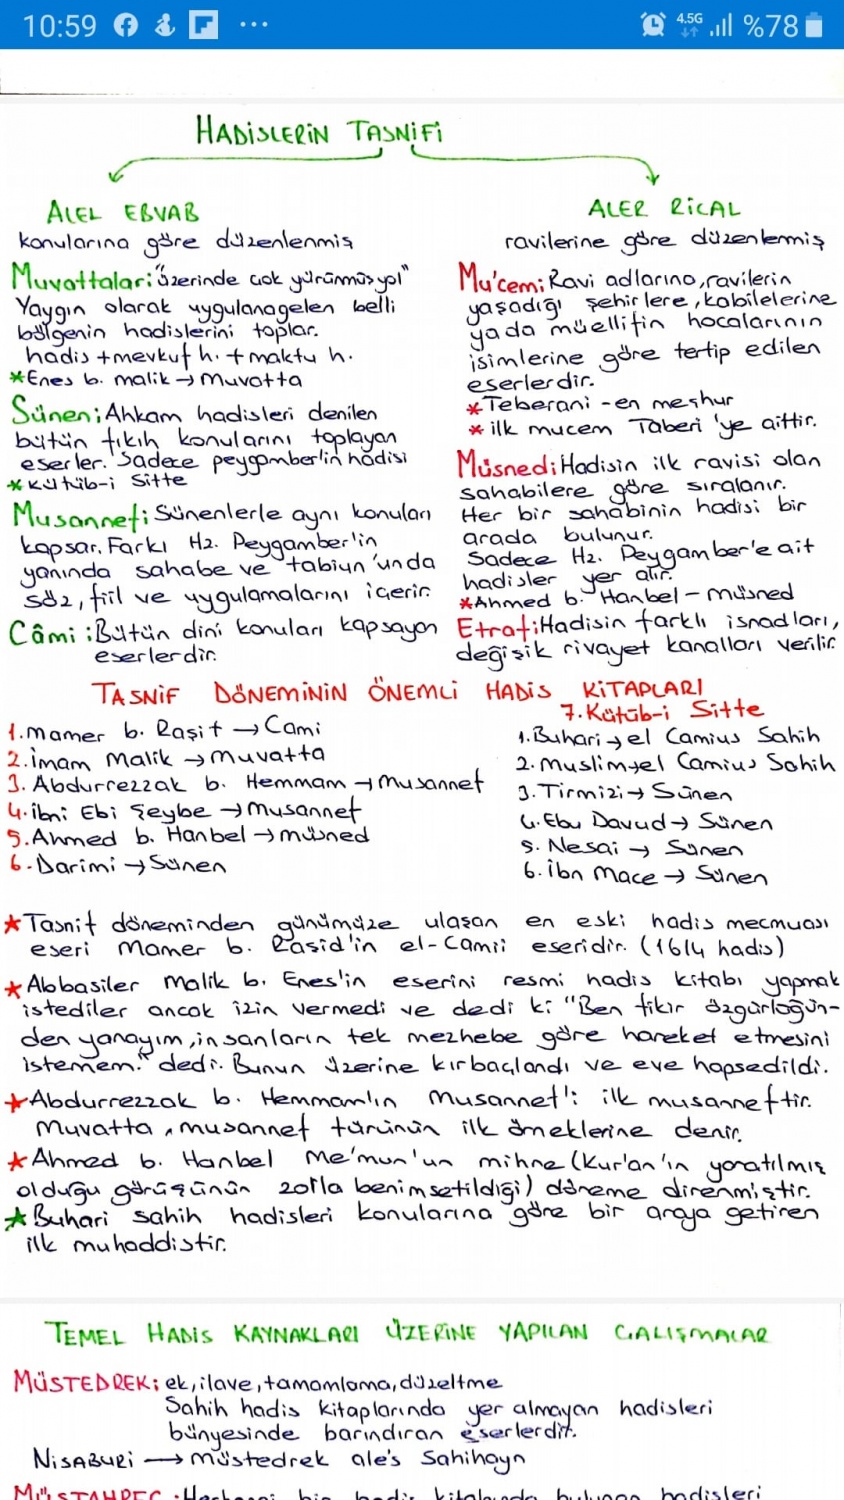 10:59 ... 4.5G %78
HADİSLERİN TASNİFİ
ALEL EBVAB
konularına göre düzenlenmiş
Muvattalar: "üzerinde çok yürünmüş yol"
Yaygın olarak uygulanagelen belli
bölgenin hadislerini toplar.
hadis + mevkuf h. + maktu h.
*Enes b. malik → Muvatta
Sünen; Ahkam hadisleri denilen
bütün fıkıh konularını toplayan
eserler. Sadece peygamber'in hadisi
*Kütüb-i Sitte
Musannef; Sünenlerle aynı konuları
kapsar. Farkı Hz. Peygamber'in
yanında sahabe ve tabiun'unda
söz, fiil ve uygulamalarını içerir.
Câmi: Bütün dini konuları kapsayan
eserlerdir.
ALER RİCAL
ravilerine göre düzenlenmiş
Mu'cem; Ravi adlarına, ravilerin
yaşadığı şehirlere, kabilelerine
ya da müellifin hocalarının
isimlerine göre tertip edilen
eserlerdir.
*Teberani - en meşhur
*ilk mucem Taberi'ye aittir.
Müsned; Hadisin ilk ravisi olan
sahabilere göre sıralanır.
Her bir sahabinin hadisi bir
arada bulunur.
Sadece Hz. Peygamber'e ait
hadisler yer alır.
*Ahmed b. Hanbel - müsned
Etraf; Hadisin farklı isnadları,
değişik rivayet kanalları verilir.
TASNİF DÖNEMİNİN ÖNEMLİ HADİS KİTAPLARI
1. Mamer b. Raşit → Cami
2. İmam Malik → Muvatta
3. Abdurrezzak b. Hemmam → Musannef
4. ibni Ebi Şeybe → Musannef
5. Ahmed b. Hanbel → müsned
6. Darimi → Sünen
7. Kütüb-i Sitte
1. Buhari → el Camius Sahih
2. Muslim → el Camius Sahih
3. Tirmizi → Sünen
4. Ebu Davud → Sünen
5. Nesai → Sünen
6. İbn Mace → Sünen
*Tasnif döneminden günümüze ulaşan en eski hadis mecmuası
eseri Mamer b. Raşid'in el-Camii eseridir. (1614 hadis)
*Abbasiler Malik b. Enes'in eserini resmi hadis kitabı yapmak
istediler ancak izin vermedi ve dedi ki "Ben fikir özgürlüğün-
den yanayım, insanların tek mezhebe göre hareket etmesini
istemem." dedi. Bunun üzerine kırbaçlandı ve eve hapsedildi.
*Abdurrezzak b. Hemmam'ın Musannef'i ilk musanneftir.
Muvatta, musannef türünün ilk örneklerine denir.
*Ahmed b. Hanbel Me'mun'un mihne (Kur'an'ın yaratılmış
olduğu görüşünün zorla benimsetildiği) döneme direnmiştir.
*Buhari sahih hadisleri konularına göre bir araya getiren
ilk muhaddistir.
TEMEL HADİS KAYNAKLARI ÜZERİNE YAPILAN ÇALIŞMALAR
MÜSTEDREK; ek, ilave, tamamlama, düzeltme
Sahih hadis kitaplarında yer almayan hadisleri
bünyesinde barındıran eserlerdir.
NİSABURİ → müstedrek ale's Sahihayn